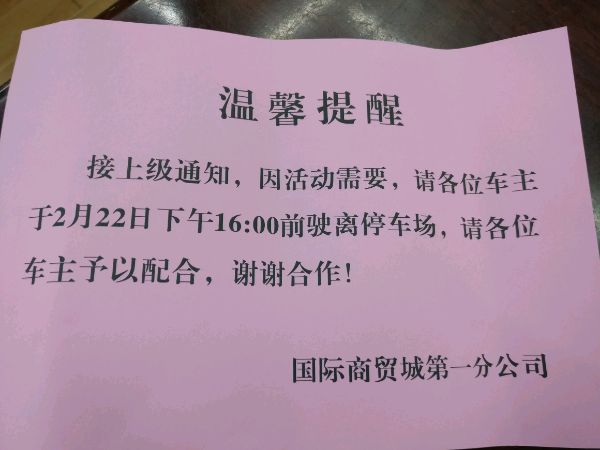 温馨提醒
接上级通知，因活动需要，请各位车主
于2月22日下午16:00前驶离停车场，请各位
车主予以配合，谢谢合作！
国际商贸城第一分公司